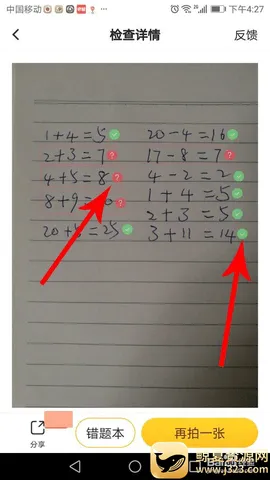 中国移动 下午4:27
检查详情 反馈
1+4=5 20-4=16
2+3=7 17-8=7
4+5=8 4-2=2
8+9= 1+4=5
2+3=5
20+5=25 3+11=14
分享 错题本 再拍一张
鲸鱼资源网
www.j323.com